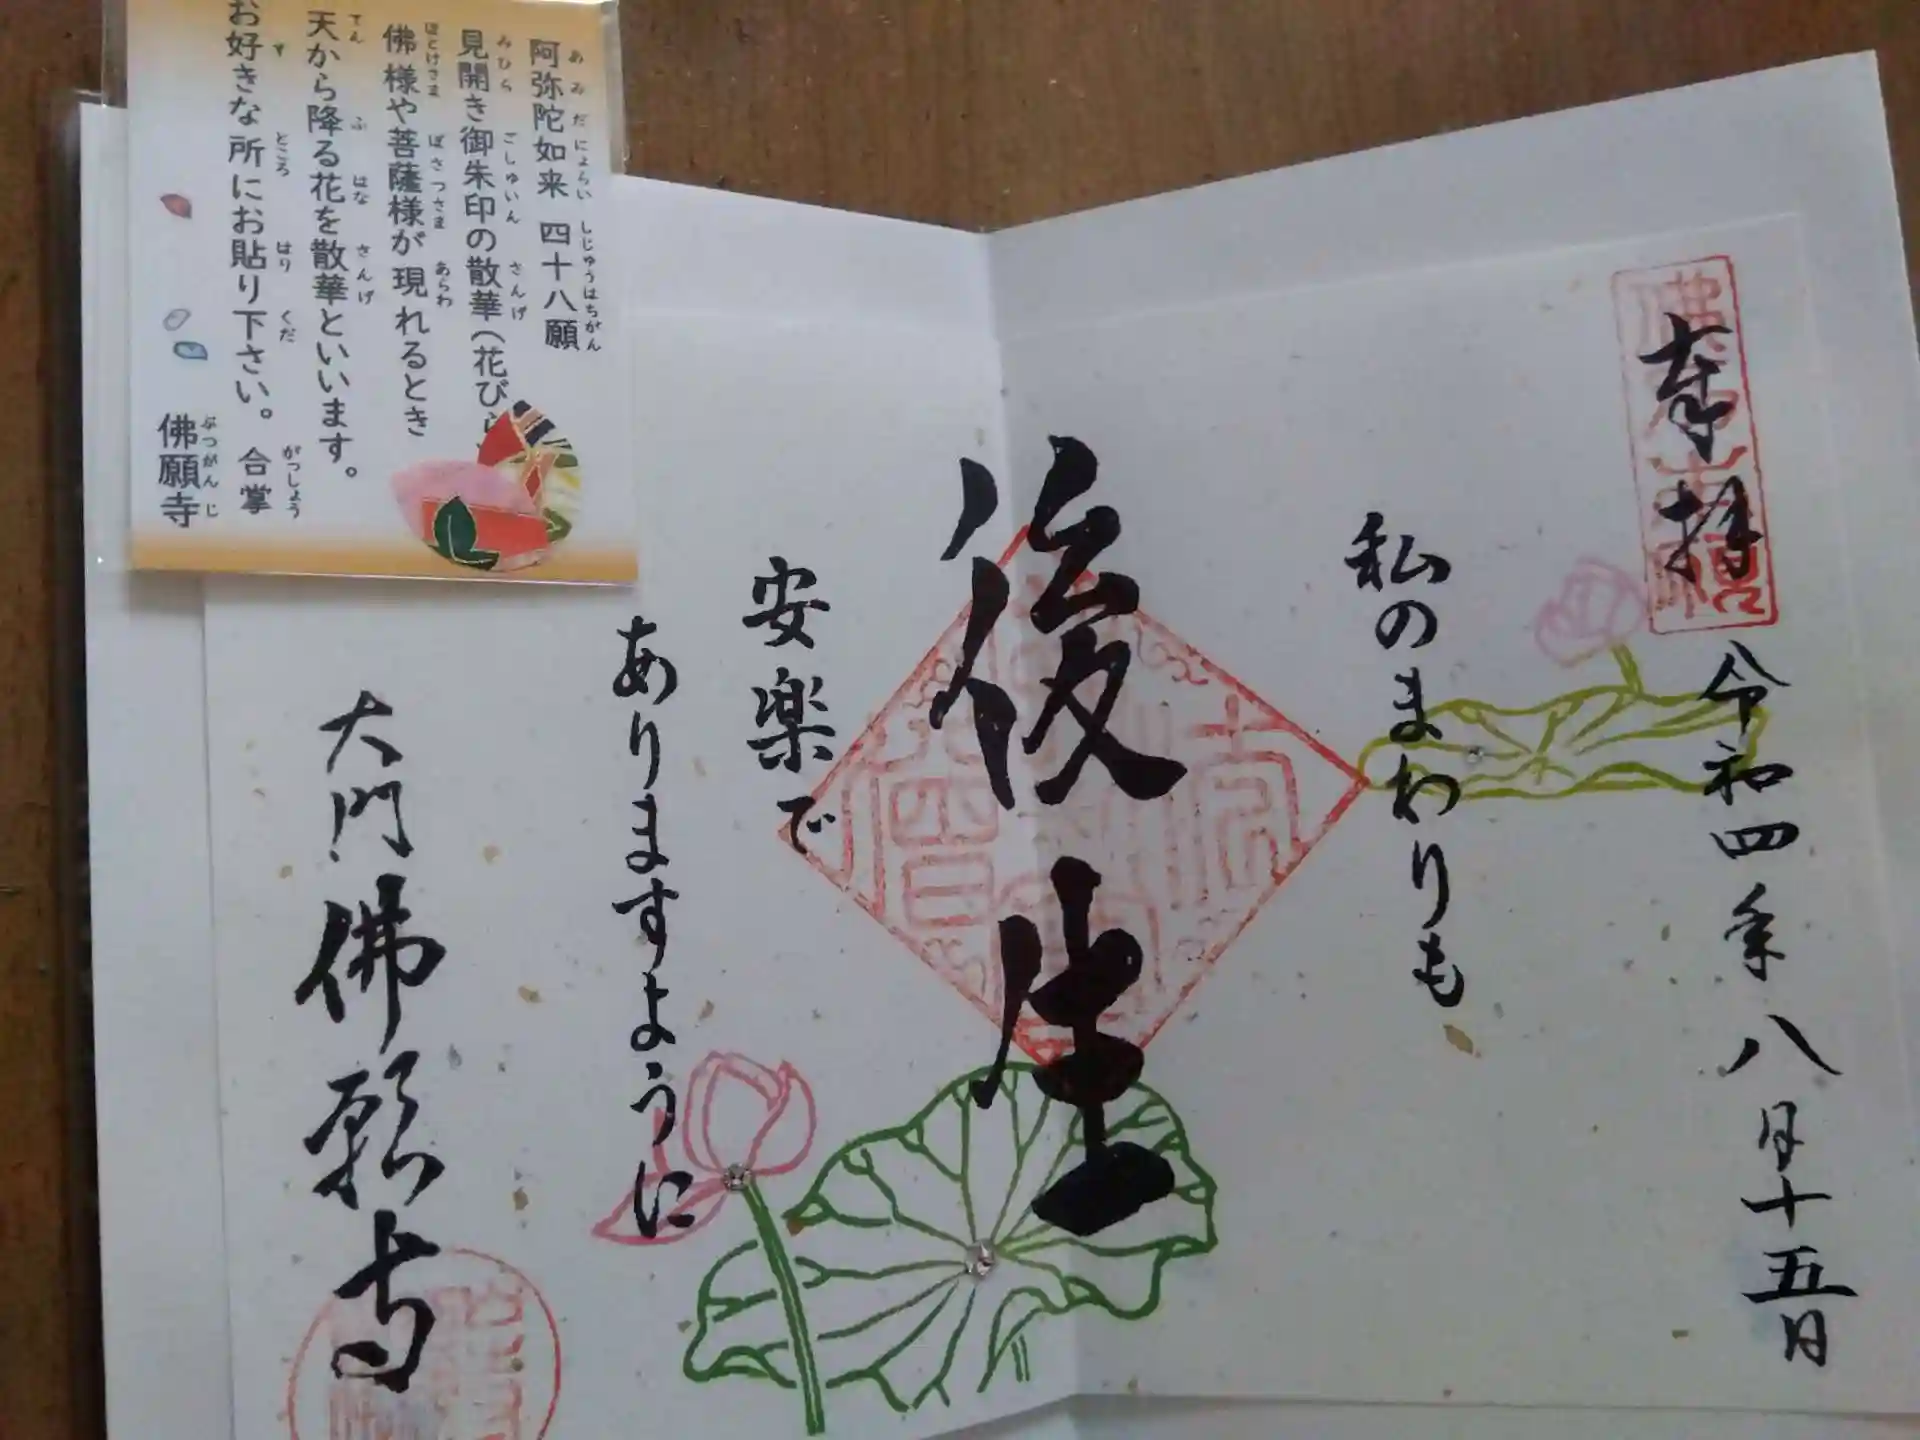 阿弥陀如来 四十八願
見開き御朱印の散華(花びら
佛様や菩薩様が現れるとき
天から降る花を散華といいます。
お好きな所にお貼り下さい。 合掌
佛願寺
奉拝
令和四年八月十五日
私のまわりも
後生
安楽で
ありますように
大門 佛願寺